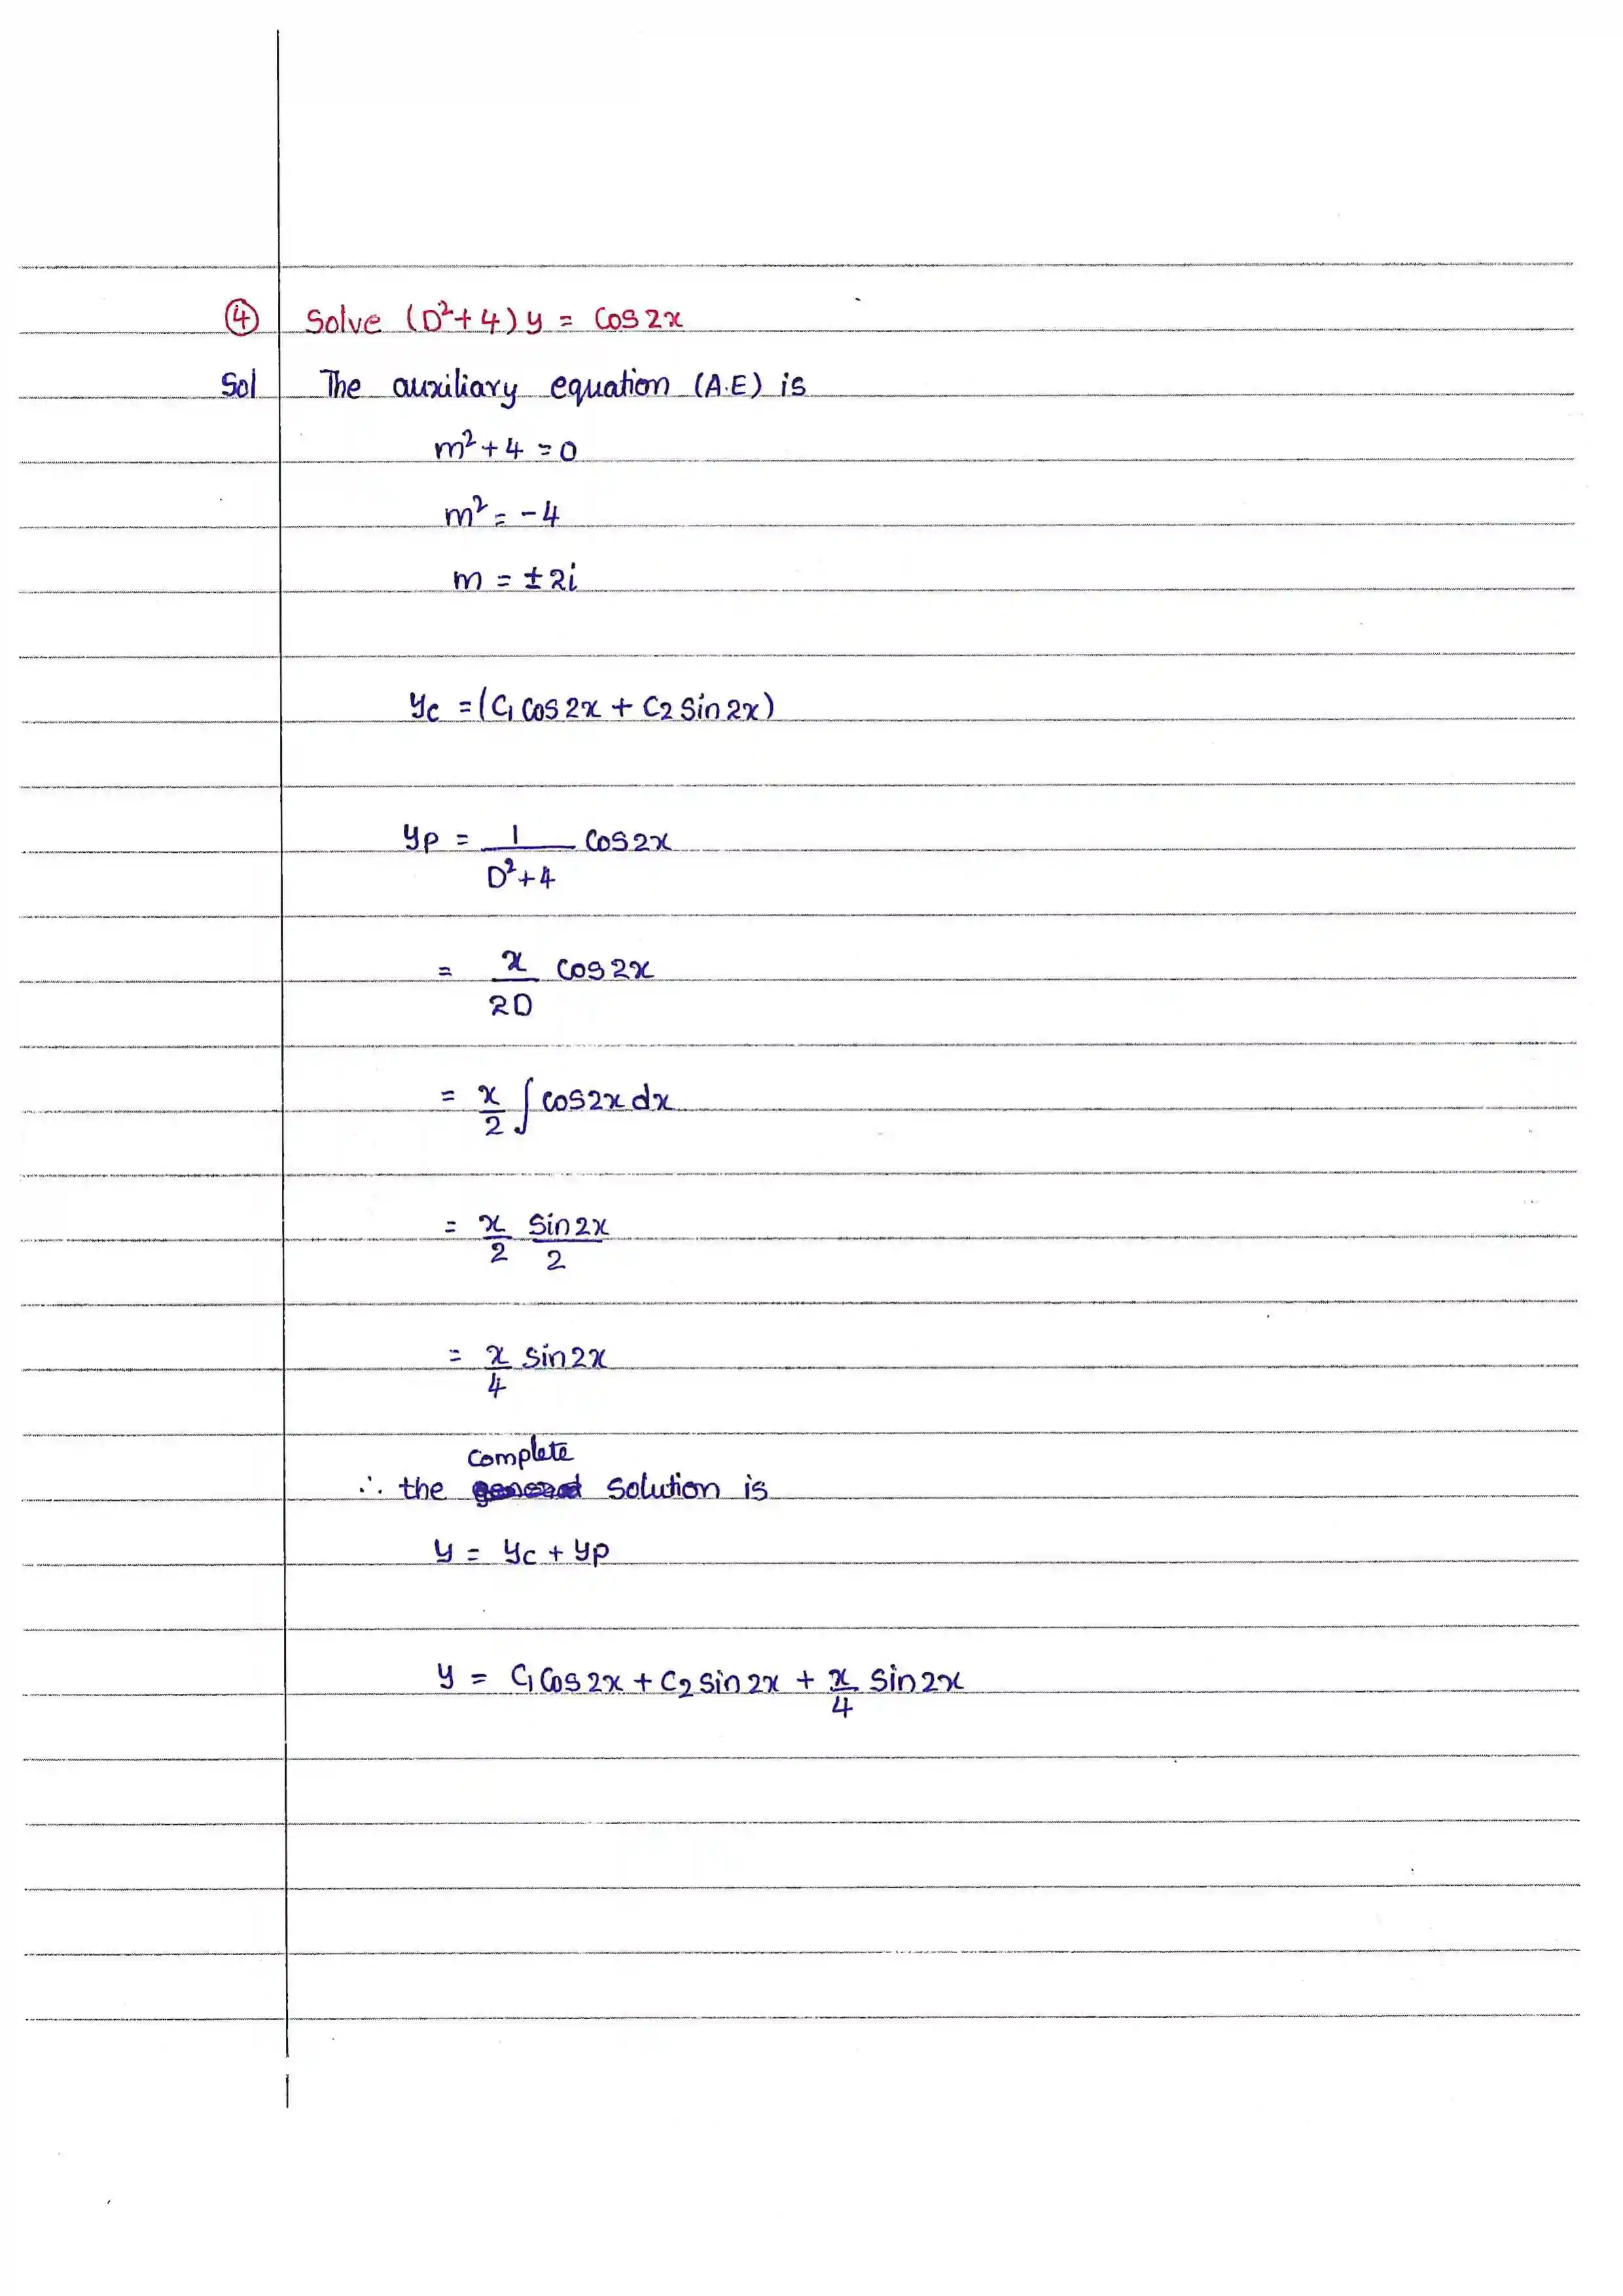 ④ Solve (D²+4)y = Cos2x
Sol The auxiliary equation (A.E) is
m²+4 = 0
m² = -4
m = ±2i
yc = (C1 Cos2x + C2 Sin2x)
yp = 1/(D²+4) Cos2x
= x/2D Cos2x
= x/2 ∫ cos2x dx
= x/2 Sin2x/2
= x/4 Sin2x
complete
∴ the solution is
y = yc + yp
y = C1 Cos2x + C2 Sin2x + x/4 Sin2x